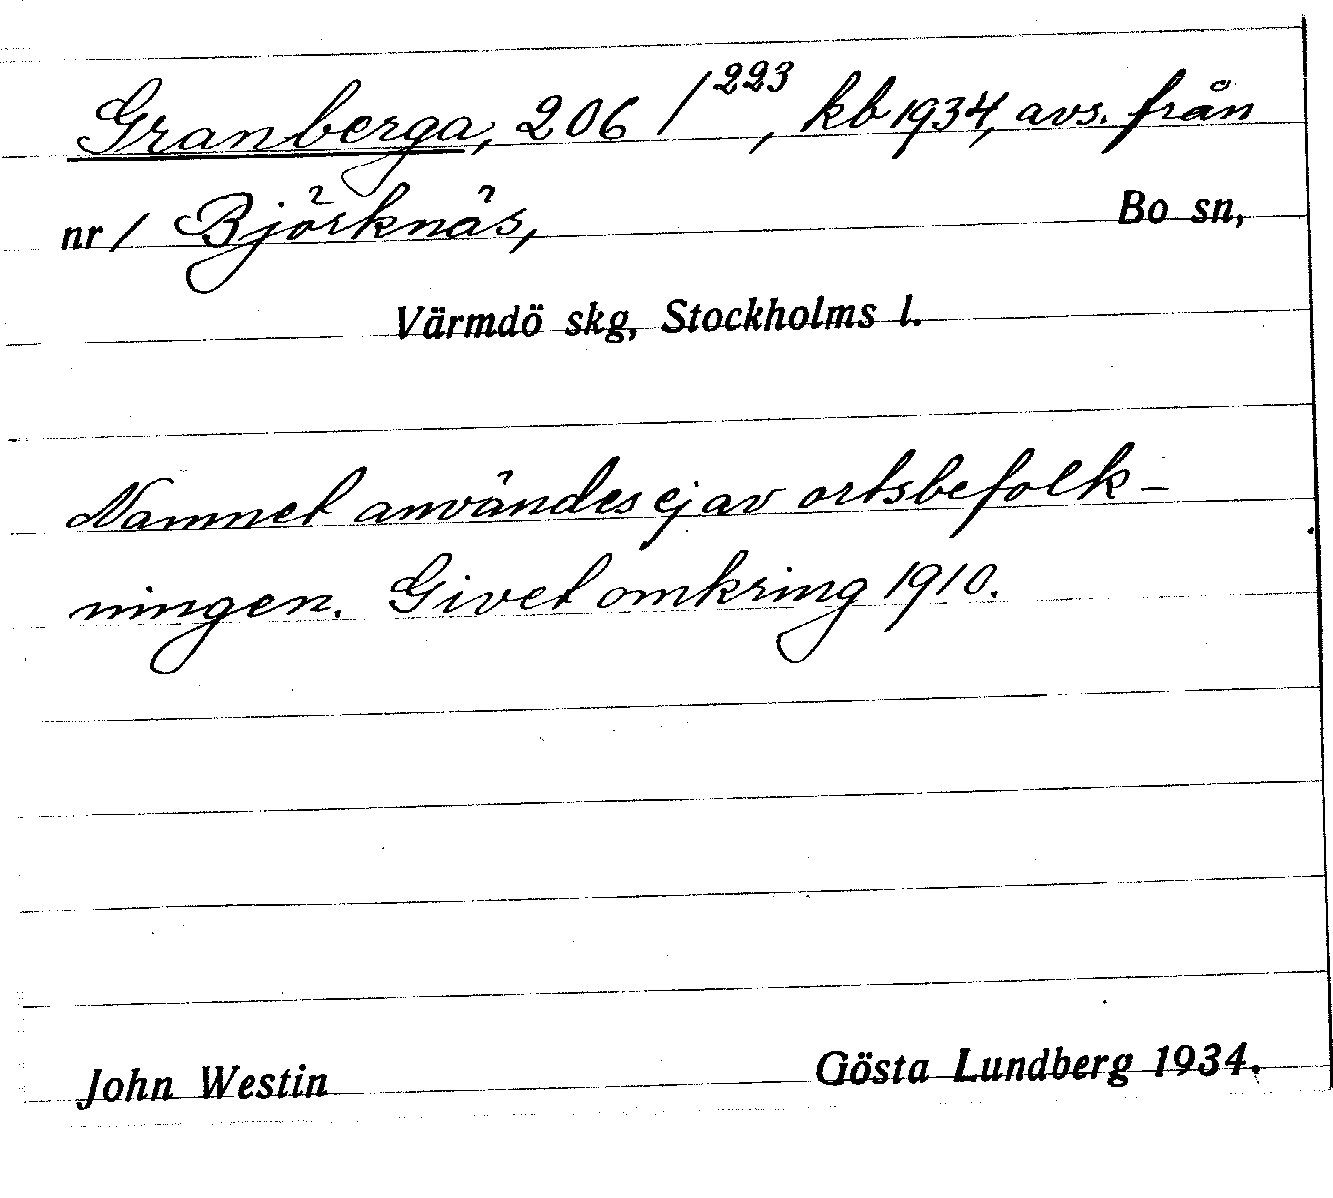 Granberga, 206 / 223, kb 1934, avs. från
nr 1 Björknäs, Bo sn,
Värmdö skg, Stockholms l.
Namnet användes ej av ortsbefolk-
ningen. Givet omkring 1910.
John Westin Gösta Lundberg 1934.